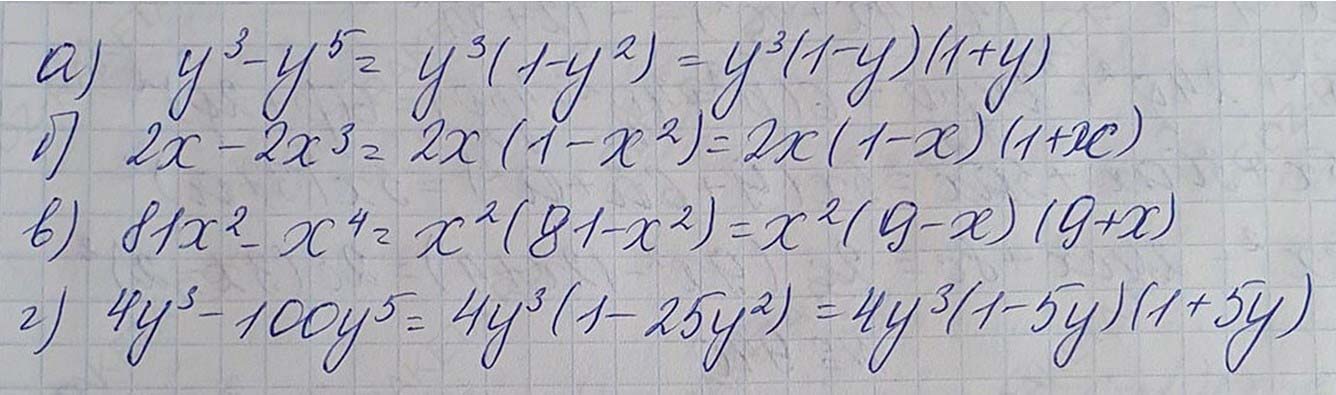 а) y³ - y⁵ = y³(1-y²) = y³(1-y)(1+y)
б) 2x - 2x³ = 2x(1-x²) = 2x(1-x)(1+x)
в) 81x² - x⁴ = x²(81-x²) = x²(9-x)(9+x)
г) 4y³ - 100y⁵ = 4y³(1-25y²) = 4y³(1-5y)(1+5y)